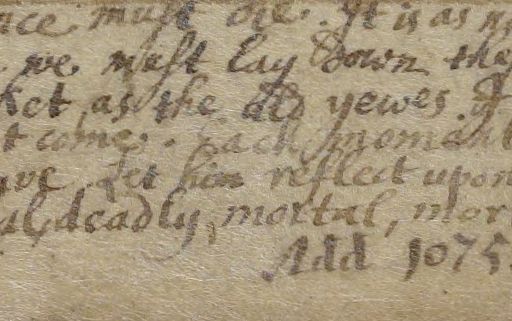 nce must die. It is as n
we must lay down the
ket, as the old yewes of
t come. Each moment
ave. Let him reflect upon
al, deadly, mortal, mor
Add 1075